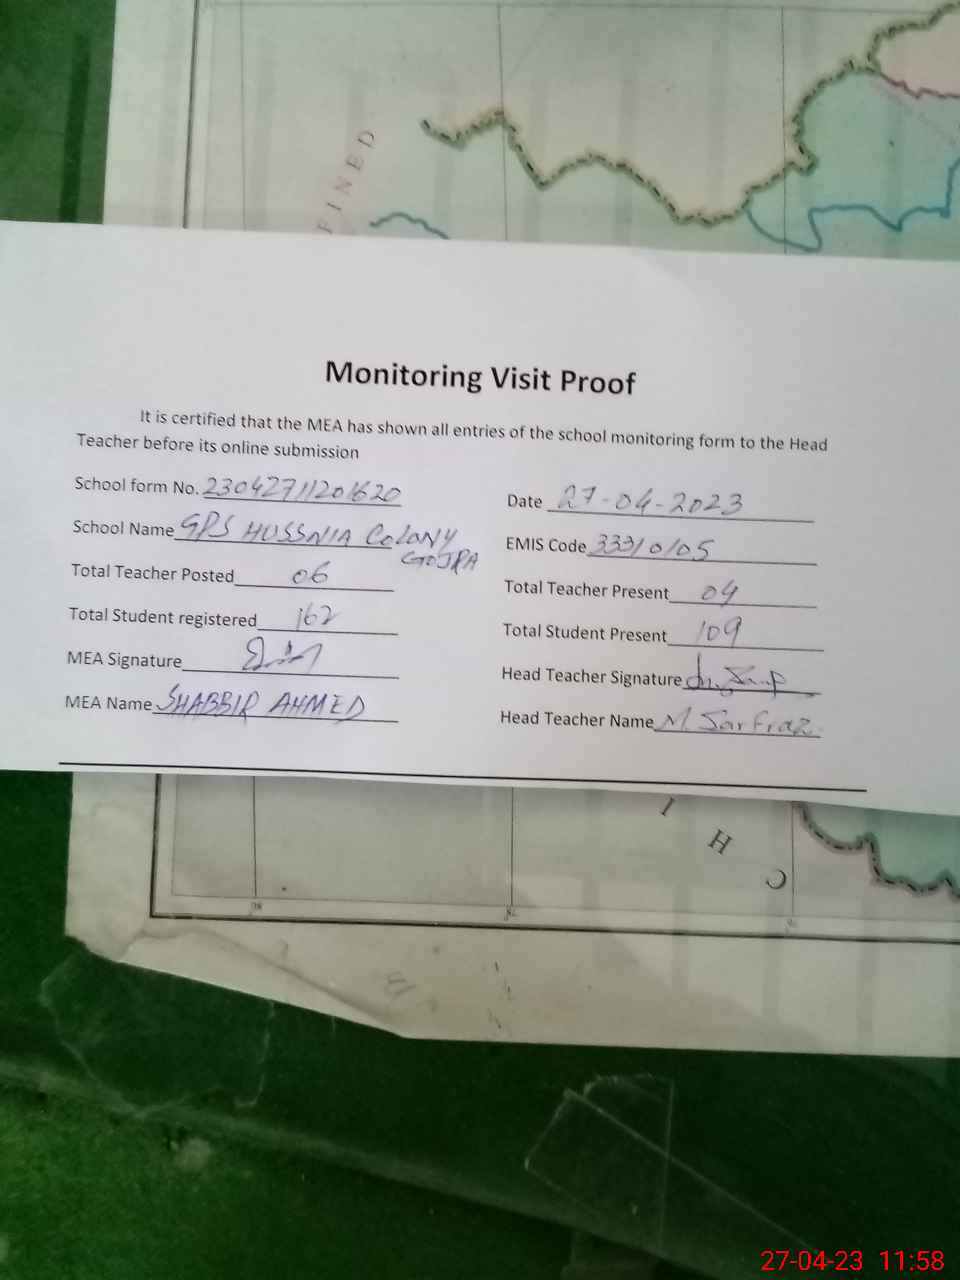 FINED
Monitoring Visit Proof
It is certified that the MEA has shown all entries of the school monitoring form to the Head
Teacher before its online submission
School form No. 23042711201620
Date 27-04-2023
School Name GPS HUSSNIA COLONY
GOJRA
EMIS Code 33310105
Total Teacher Posted 06
Total Teacher Present 04
Total Student registered 162
Total Student Present 109
MEA Signature
Head Teacher Signature
MEA Name SHABBIR AHMED
Head Teacher Name M. Sarfraz
I H C
27-04-23 11:58